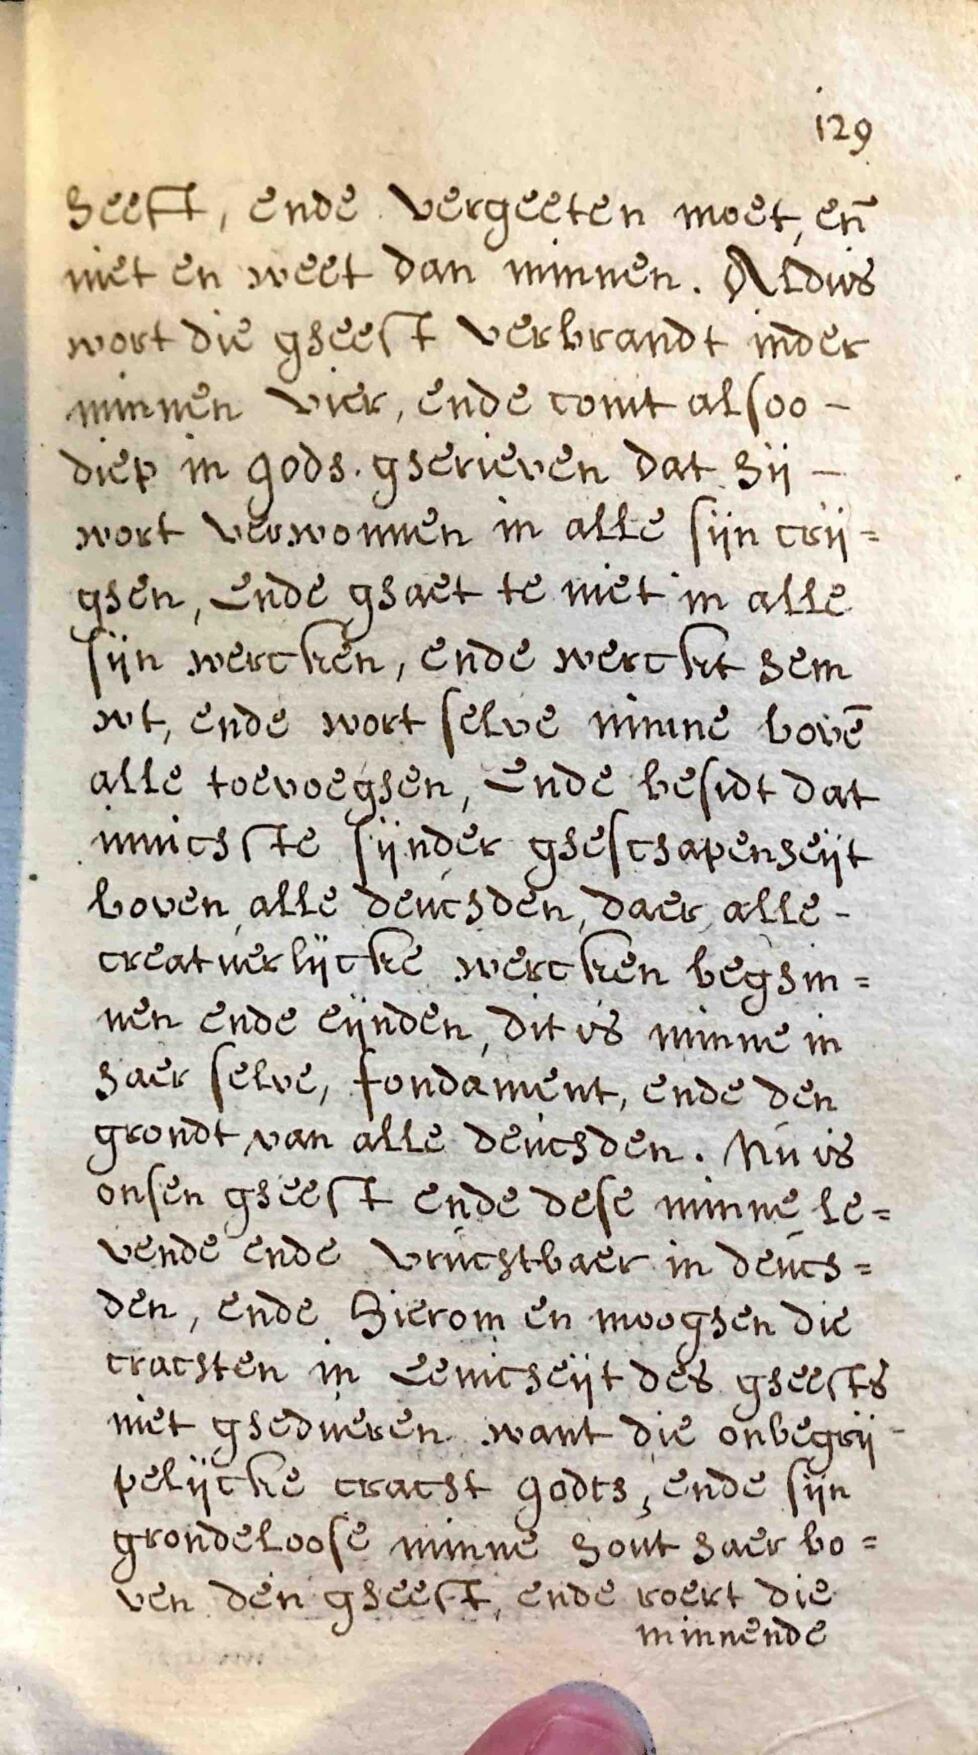 129
heeft, ende vergeeten moet, en̄
niet en weet dan minnen. Aldus
wort die gheest verbrandt inder
minnen vier, ende comt alsoo –
diep in gods. gherieven dat hij –
wort verwonnen in alle sijn crij=
ghen, Ende ghaet te niet in alle
sijn wercken, ende werckt hem
wt, ende wort selve minne bovē
alle toevoeghen, Ende besidt dat
innichste sijnder gheschapenheijt
boven alle deuchden, daer alle -
creatuerlijcke wercken beghin=
nen ende eijnden, dit is minne in
haer selve, fondament, ende den
grondt van alle deuchden. Nu is
onsen gheest ende dese minne le=
vende ende vruchtbaer in deuch=
den, ende hierom en mooghen die
crachten in Eenicheijt des gheests
niet ghedueren want die onbegrij-
pelijcke cracht godts, ende sijn
grondeloose minne hout haer bo=
ven den gheest, ende roert die
minnende